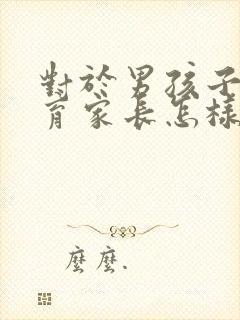 對於男孩子
育家長怎樣
麼麼.